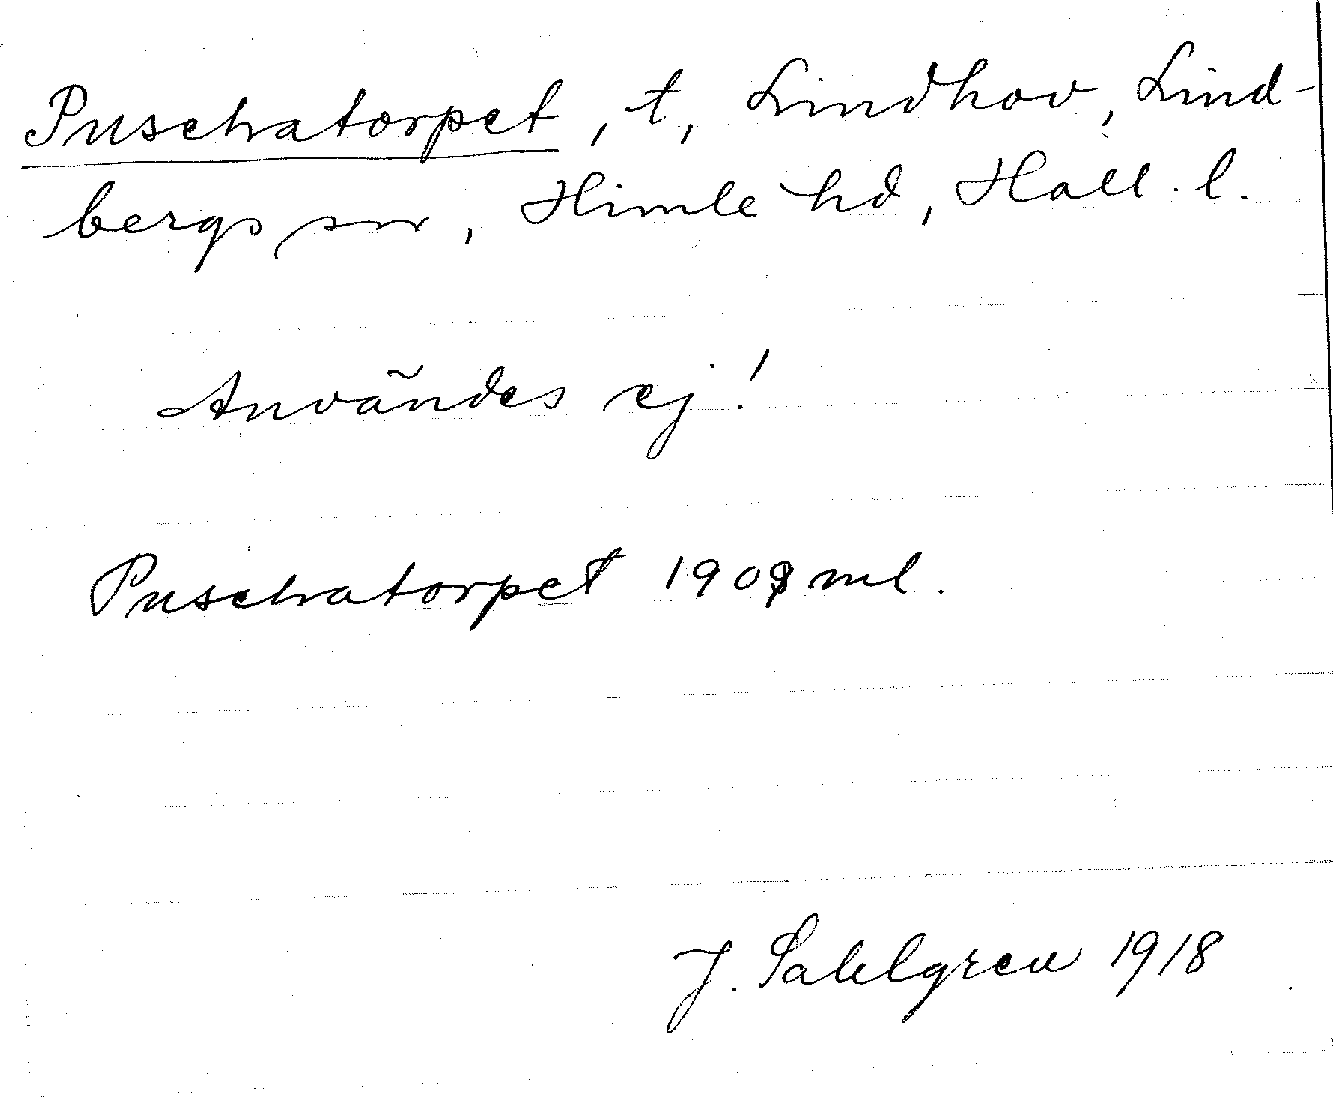 Puschatorpet, t, Lindhov, Lind-
bergs sn, Himle hd, Hall. l.
Användes ej!
Puschatorpet 1909 ml.
J. Sahlgren 1918